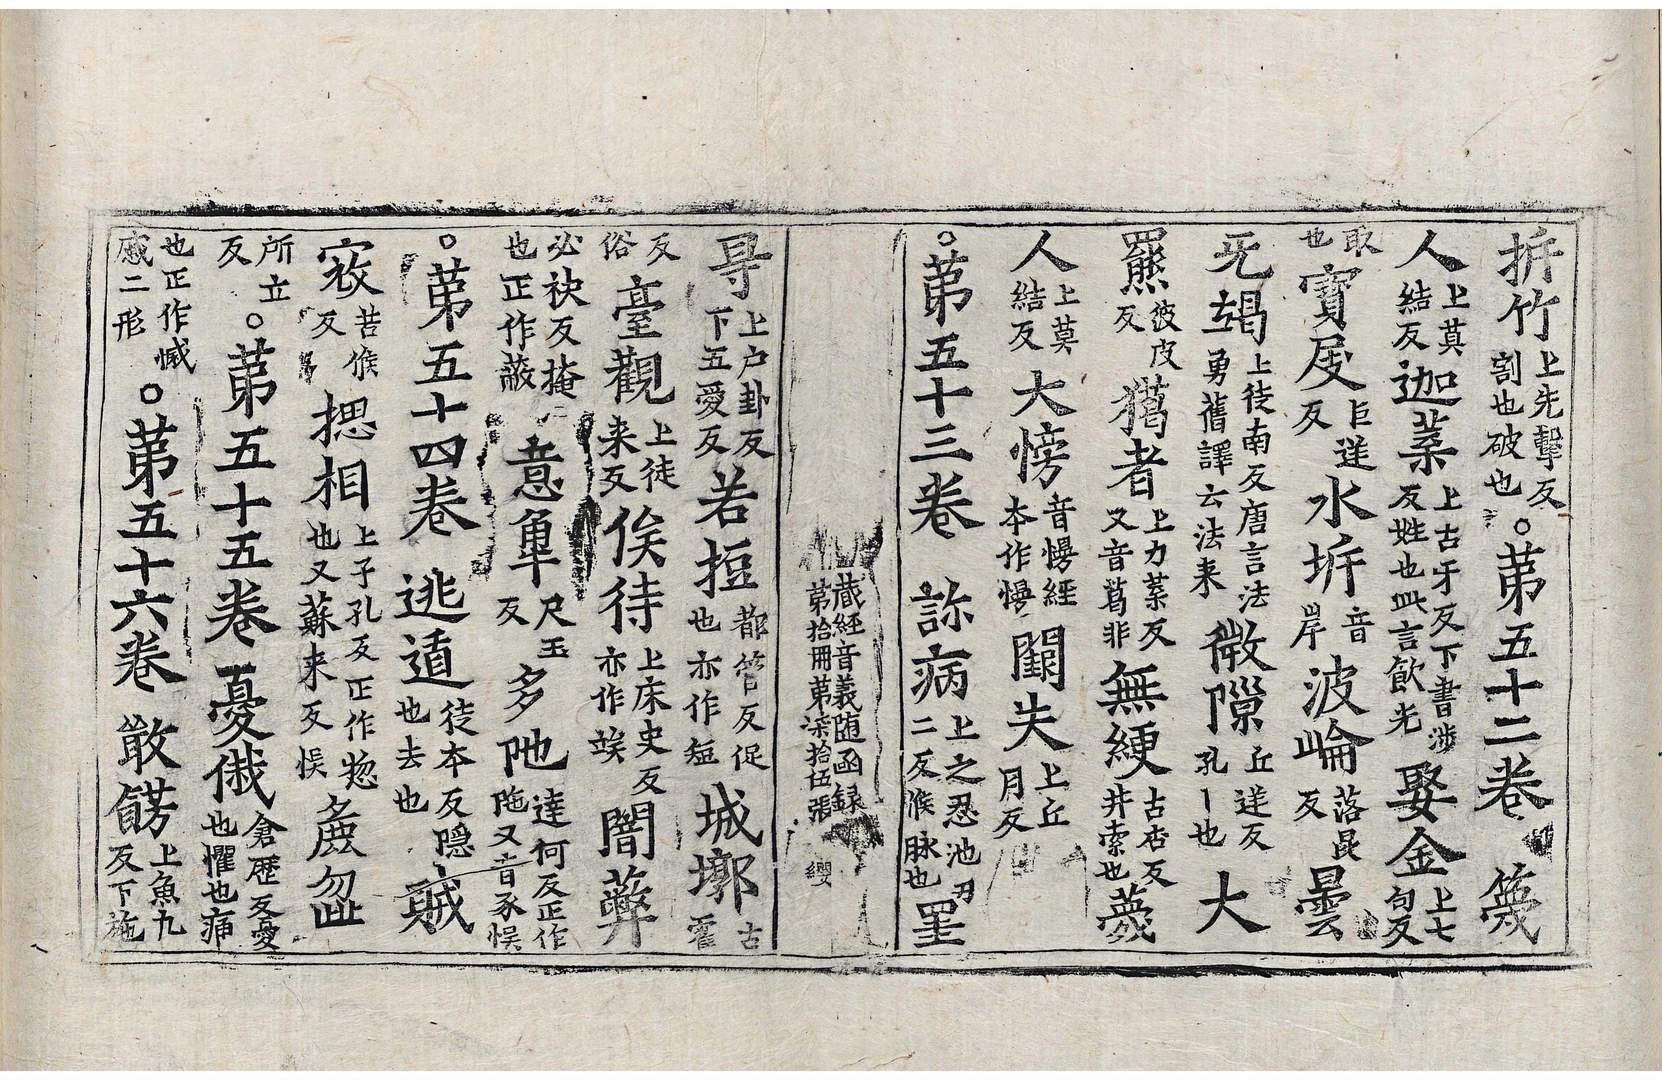 折竹上先擊反割也破也○苐五十二卷 篾
人上莫結反迦葉上古牙反下書涉反姓也此言飲光娶金上七句反
取也寳屐巨逆反水圻音岸波崘落昆反曇
无竭上徒南反唐言法勇舊譯云法来微隙丘逆反孔丨也大
羆彼皮反獦者上力葉反又音葛非無綆古杏反井索也薎
人上莫結反大愲音慢經本作慢闃失上丘月反
○苐五十三卷 診病上之忍池刃二反候脉也罣
藏經音義随函録苐拾冊苐柒拾伍張 纓
㝵上户卦反下五愛反若𢭃都管反促也亦作短城墎古霍
反俗臺觀上徒来反俟待上床史反亦作竢闇蔽
必袂反掩也正作蔽意⿱尺玉反多陁達何反正作陁又音豕悞
○苐五十四卷 逃遁徒本反隠也去也賊
宼苦候反揌相上子孔反正作惣也又蘇来反悞麁忽
所立反○苐五十五卷 憂慼倉歷反憂也懼也痛
也正作慽慼二形○苐五十六卷 㪚餝上魚九反下施